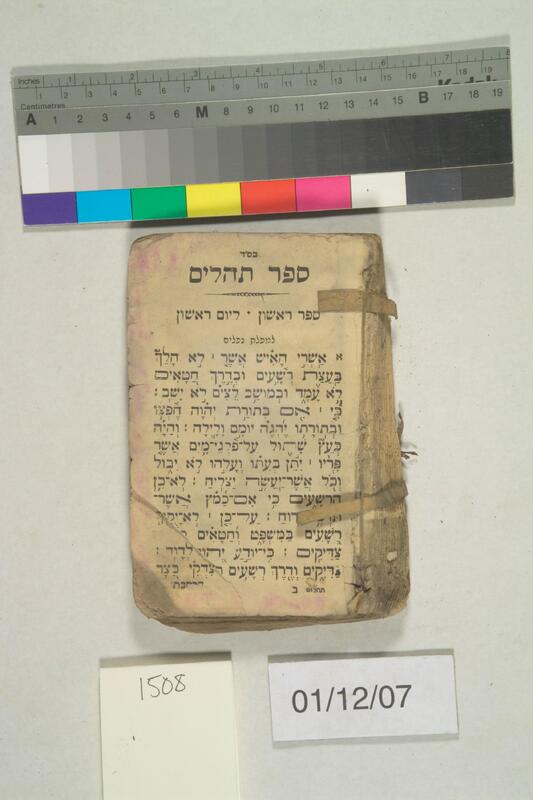 Inches 1 2 3 4 5 6 7 8
1 2 3 4 5 6 7 8 9 10 11 12 13 14 15 16 17 18 19
Centimetres
A 1 2 3 4 5 6 M 8 9 10 11 12 13 14 15 B 17 18 19
בס״ד
ספר תהלים
ספר ראשון * ליום ראשון
א אַשְׁרֵי הָאִישׁ אֲשֶׁר ׀ לֹא הָלַךְ
בַּעֲצַת רְשָׁעִים וּבְדֶרֶךְ חַטָּאִים
לֹא עָמָד וּבְמוֹשַׁב לֵצִים לֹא יָשָׁב :
כִּי ׀ אִם בְּתוֹרַת יְהוָה חֶפְצוֹ
וּבְתוֹרָתוֹ יֶהְגֶּה יוֹמָם וָלָיְלָה : וְהָיָה
כְּעֵץ שָׁתוּל עַל־פַּלְגֵי־מָיִם אֲשֶׁר
פִּרְיוֹ ׀ יִתֵּן בְּעִתּוֹ וְעָלֵהוּ לֹא יִבּוֹל
וְכֹל אֲשֶׁר־יַעֲשֶׂה יַצְלִיחַ : לֹא־כֵן
הָרְשָׁעִים כִּי אִם־כַּמֹּץ אֲשֶׁר־
רוּחַ : עַל־כֵּן ׀ לֹא־יָקֻמוּ
רְשָׁעִים בַּמִּשְׁפָּט וְחַטָּאִים
צַדִּיקִים : כִּי־יוֹדֵעַ
צַדִּיקִים וְדֶרֶךְ רְשָׁעִים
ב
1508
01/12/07